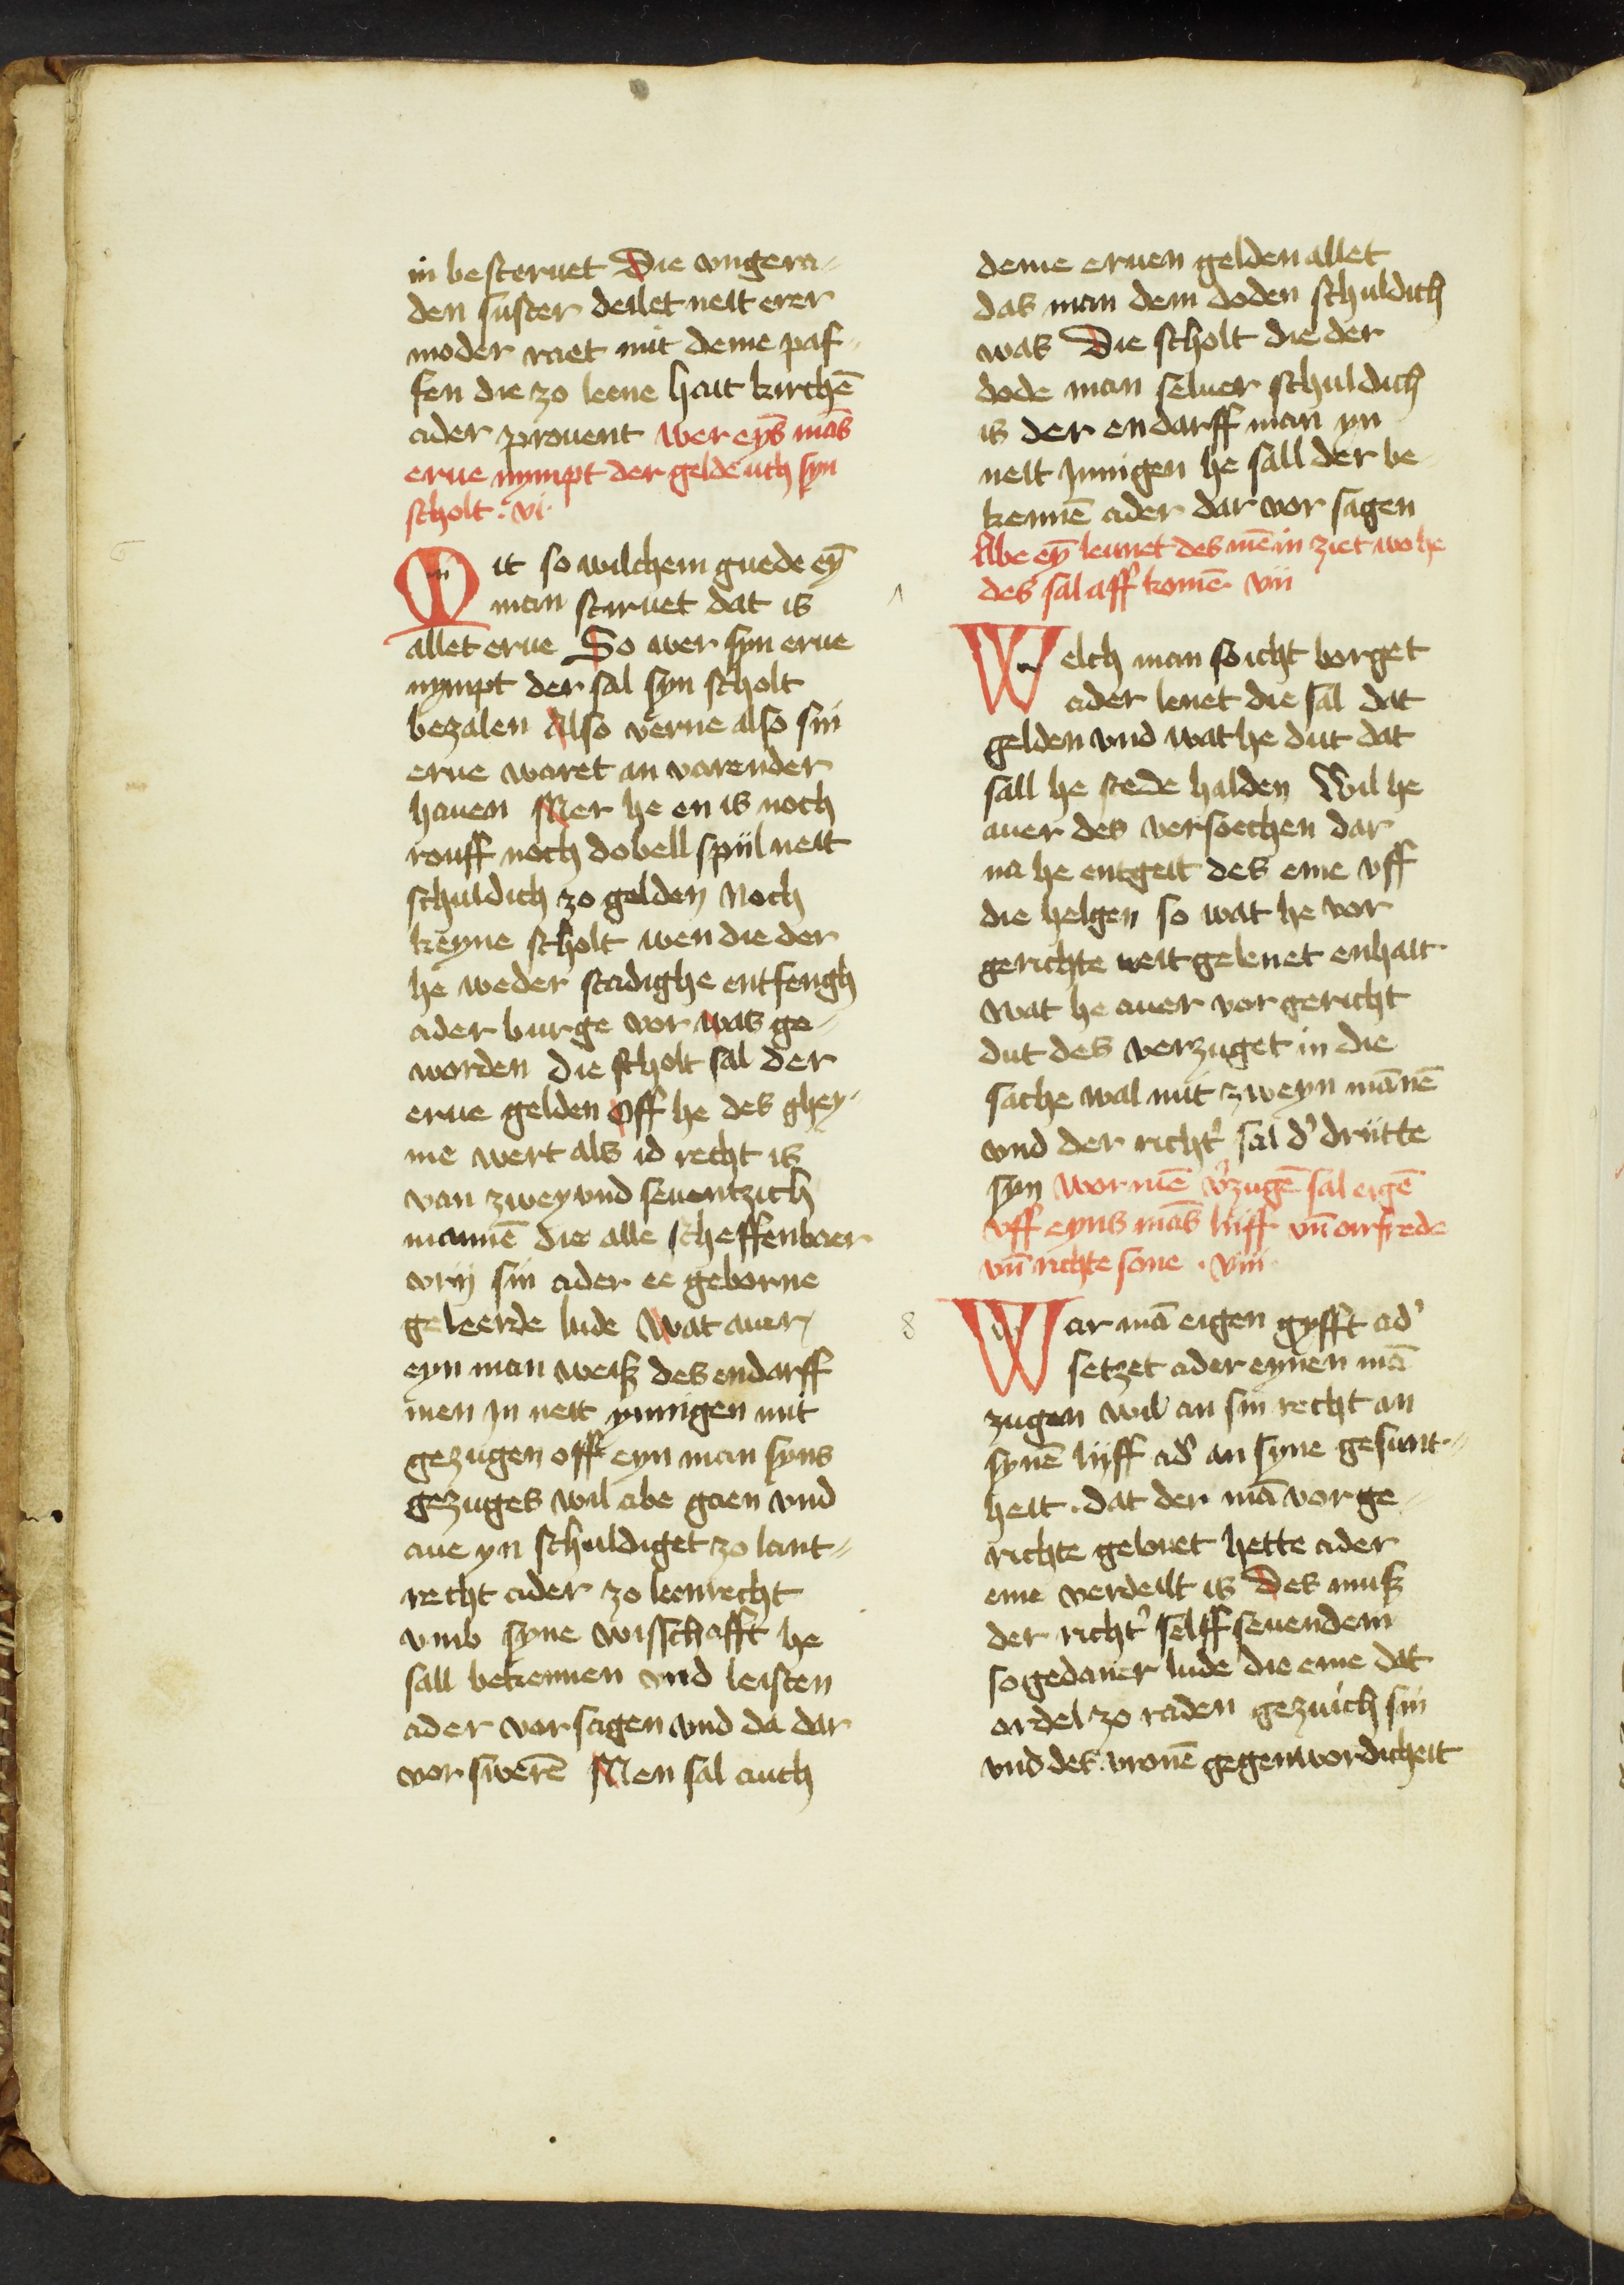 in besteruet Die vngera-
den suster deilet neit erer
moder raet mit deme paf-
fen die zo leene hait kirchē
ader prouent wer eyns mās
erue nympt der gelde uch syn
scholt · vi ·
6
Mit so wilchem guede eȳ
man steruet dat is
allet erue So wer syn erue
nympt der sal syn scholt
bezalen Also verne also sin
erue waret an varender
hauen Mer he en is noch
rouff noch dobell spiil neit
schuldich zo gelden Noch
keyne scholt wen die der
he weder stadighe entfengh
ader burge vor was ge-
worden die scholt sal der
erue gelden Off he des ghey-
me wert als id recht is
van zwey vnd seuentzich
mannē die alle scheffenbaer
vrij sin ader ee geborne
geleerde lude Wat auer
eyn man weiß des endarff
men in neit ynnigen mit
gezugen off eyn man syns
gezuges wil abe gaen vnd
aue yn schuldiget zo lant-
recht ader zo leenrecht
vmb syne wisschafft he
sall bekennen vnd leisten
ader vorsagen vnd da dar
vor swerē Men sal auch
deme eruen gelden allet
das man dem doden schuldich
was Die scholt die der
dode man seluer schuldich
is der en darff man yn
neit Innigen he sall der be-
kennē ader dar vor sagen
Abe eȳ lennet des mē in ziet wo he
des sal aff komē vii
Welch man so icht borget
ader lenet die sal dat
gelden vnd wat he dut dat
sall he stede halden Wil he
auer des versoechen dar
na he entgeit des eme vff
die helgen so wat he vor
gerichte neit gelenet enhait
Wat he auer vor gericht
dut des verzuget in die
sache wal mit zweyn mānē
vnd der richt' sal d' drutte
syn Wor mē v'zugē sal eigē
vff eyns mās liiff vn̄ orfrede
vn̄ richte sone · viii ·
8
War mā eigen gyfft ad'
setzet ader eynen mā
zugen wil an sin recht an
synē lijff ad' an syne gesunt-
heit · dat der mā vor ge-
richte gelouet hette ader
eme verdeilt is Des muß
der richt' selff seuendem
sogedaner lude die eme dat
ordel zo raden gezuich sin
vnd des vronē gegenwordicheit